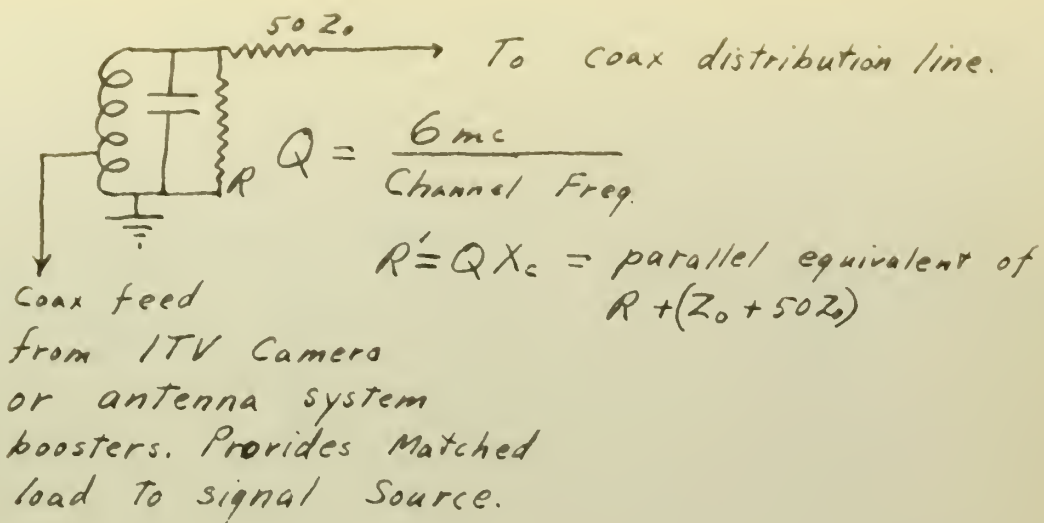 50 Z₀
To coax distribution line.
R
Q = 6 mc / Channel Freq.
R' = QXc = parallel equivalent of
R + (Z₀ + 50 Z₀)
Coax feed
from ITV Camera
or antenna system
boosters. Provides Matched
load To signal Source.